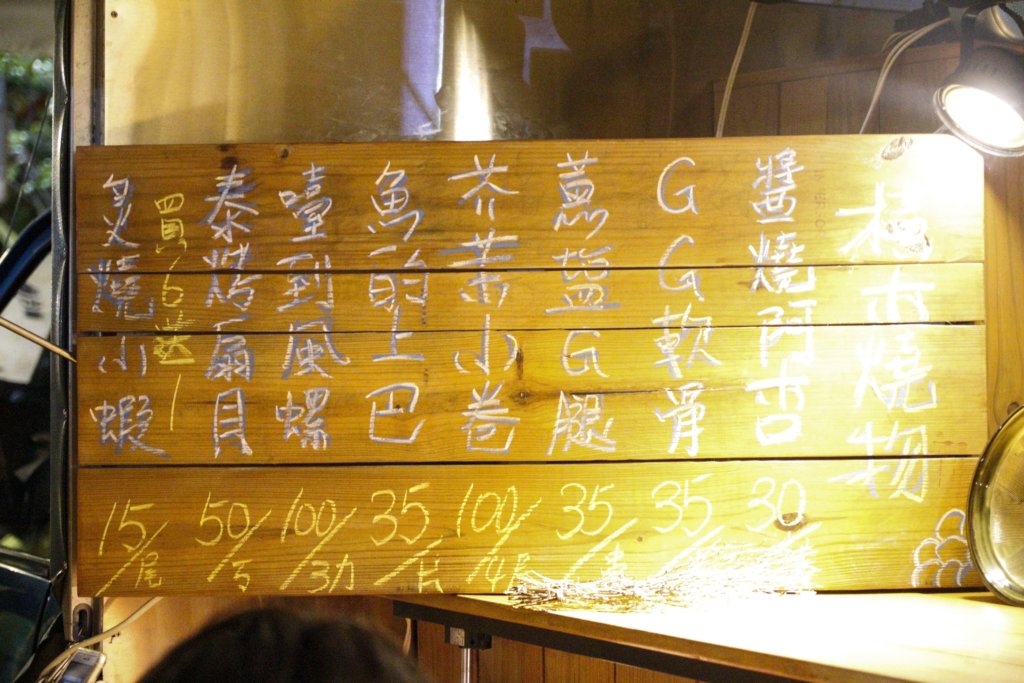 燒物
醬燒阿古
30
GG軟骨
35
蔥鹽G腿
35
芥茉小卷
100/4
魚的上巴
35/片
嚐到風螺
100/3力
泰烤扇貝
50/
買6送一
炙燒小蝦
15/尾